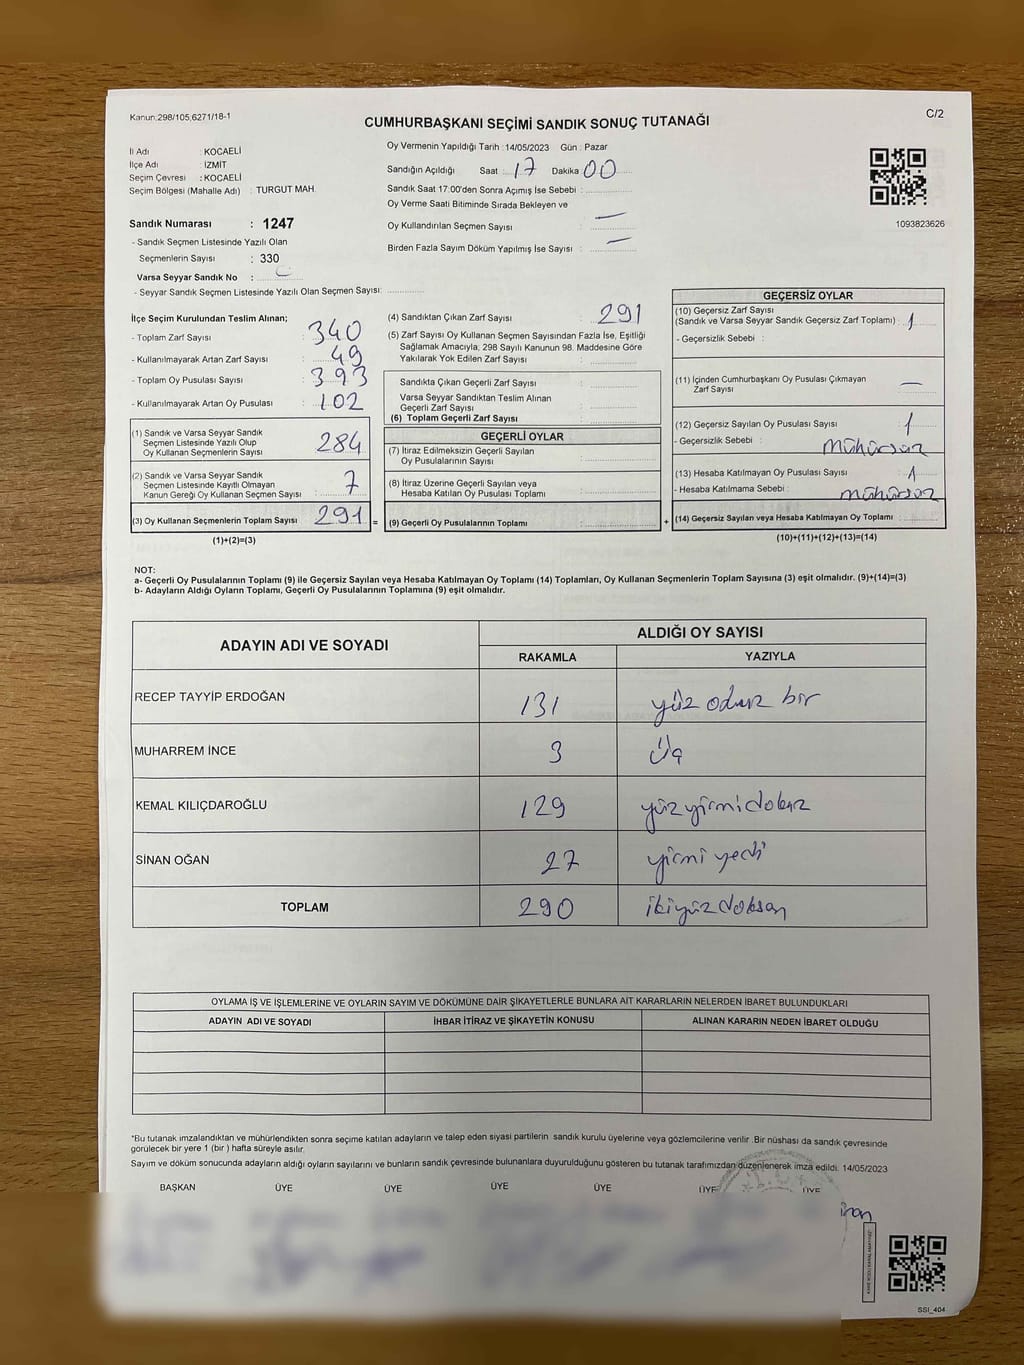 Kanun.298/105,6271/18-1
C/2
CUMHURBAŞKANI SEÇİMİ SANDIK SONUÇ TUTANAĞI
İl Adı : KOCAELİ
İlçe Adı : İZMİT
Seçim Çevresi : KOCAELİ
Seçim Bölgesi (Mahalle Adı) : TURGUT MAH.
Sandık Numarası : 1247
- Sandık Seçmen Listesinde Yazılı Olan
Seçmenlerin Sayısı : 330
Varsa Seyyar Sandık No :
- Seyyar Sandık Seçmen Listesinde Yazılı Olan Seçmen Sayısı:
Oy Vermenin Yapıldığı Tarih : 14/05/2023 Gün : Pazar
Sandığın Açıldığı Saat : 17 Dakika 00
Sandık Saat 17:00'den Sonra Açımış İse Sebebi :
Oy Verme Saati Bitiminde Sırada Bekleyen ve
Oy Kullandırılan Seçmen Sayısı : —
Birden Fazla Sayım Döküm Yapılmış İse Sayısı : —
1093823626
İlçe Seçim Kurulundan Teslim Alınan;
- Toplam Zarf Sayısı : 340
- Kullanılmayarak Artan Zarf Sayısı : 49
- Toplam Oy Pusulası Sayısı : 393
- Kullanılmayarak Artan Oy Pusulası : 102
(1) Sandık ve Varsa Seyyar Sandık
Seçmen Listesinde Yazılı Olup
Oy Kullanan Seçmenlerin Sayısı 284
(2) Sandık ve Varsa Seyyar Sandık
Seçmen Listesinde Kayıtlı Olmayan
Kanun Gereği Oy Kullanan Seçmen Sayısı : 7
(3) Oy Kullanan Seçmenlerin Toplam Sayısı 291 =
(1)+(2)=(3)
(4) Sandıktan Çıkan Zarf Sayısı : 291
(5) Zarf Sayısı Oy Kullanan Seçmen Sayısından Fazla İse, Eşitliği
Sağlamak Amacıyla; 298 Sayılı Kanunun 98. Maddesine Göre
Yakılarak Yok Edilen Zarf Sayısı :
Sandıkta Çıkan Geçerli Zarf Sayısı :
Varsa Seyyar Sandıktan Teslim Alınan
Geçerli Zarf Sayısı :
(6) Toplam Geçerli Zarf Sayısı :
GEÇERLİ OYLAR
(7) İtiraz Edilmeksizin Geçerli Sayılan
Oy Pusulalarının Sayısı :
(8) İtiraz Üzerine Geçerli Sayılan veya
Hesaba Katılan Oy Pusulası Toplamı :
(9) Geçerli Oy Pusulalarının Toplamı : +
GEÇERSİZ OYLAR
(10) Geçersiz Zarf Sayısı
(Sandık ve Varsa Seyyar Sandık Geçersiz Zarf Toplamı) : 1
- Geçersizlik Sebebi :
(11) İçinden Cumhurbaşkanı Oy Pusulası Çıkmayan
Zarf Sayısı : —
(12) Geçersiz Sayılan Oy Pusulası Sayısı : 1
- Geçersizlik Sebebi : mühürsüz
(13) Hesaba Katılmayan Oy Pusulası Sayısı : 1
- Hesaba Katılmama Sebebi : mühürsüz
(14) Geçersiz Sayılan veya Hesaba Katılmayan Oy Toplamı :
(10)+(11)+(12)+(13)=(14)
NOT:
a- Geçerli Oy Pusulalarının Toplamı (9) ile Geçersiz Sayılan veya Hesaba Katılmayan Oy Toplamı (14) Toplamları, Oy Kullanan Seçmenlerin Toplam Sayısına (3) eşit olmalıdır. (9)+(14)=(3)
b- Adayların Aldığı Oyların Toplamı, Geçerli Oy Pusulalarının Toplamına (9) eşit olmalıdır.
ADAYIN ADI VE SOYADI ALDIĞI OY SAYISI
RAKAMLA YAZIYLA
RECEP TAYYİP ERDOĞAN 131 yüz otuz bir
MUHARREM İNCE 3 Üç
KEMAL KILIÇDAROĞLU 129 yüzyirmidokuz
SİNAN OĞAN 27 yirmi yedi
TOPLAM 290 ikiyüzdoksan
OYLAMA İŞ VE İŞLEMLERİNE VE OYLARIN SAYIM VE DÖKÜMÜNE DAİR ŞİKAYETLERLE BUNLARA AİT KARARLARIN NELERDEN İBARET BULUNDUKLARI
ADAYIN ADI VE SOYADI İHBAR İTİRAZ VE ŞİKAYETİN KONUSU ALINAN KARARIN NEDEN İBARET OLDUĞU
*Bu tutanak imzalandıktan ve mühürlendikten sonra seçime katılan adayların ve talep eden siyasi partilerin sandık kurulu üyelerine veya gözlemcilerine verilir .Bir nüshası da sandık çevresinde
görülecek bir yere 1 (bir ) hafta süreyle asılır.
Sayım ve döküm sonucunda adayların aldığı oyların sayılarını ve bunların sandık çevresinde bulunanlara duyurulduğunu gösteren bu tutanak tarafımızdan düzenlenerek imza edildi. 14/05/2023
BAŞKAN ÜYE ÜYE ÜYE ÜYE ÜYE ÜYE
SSİ_404